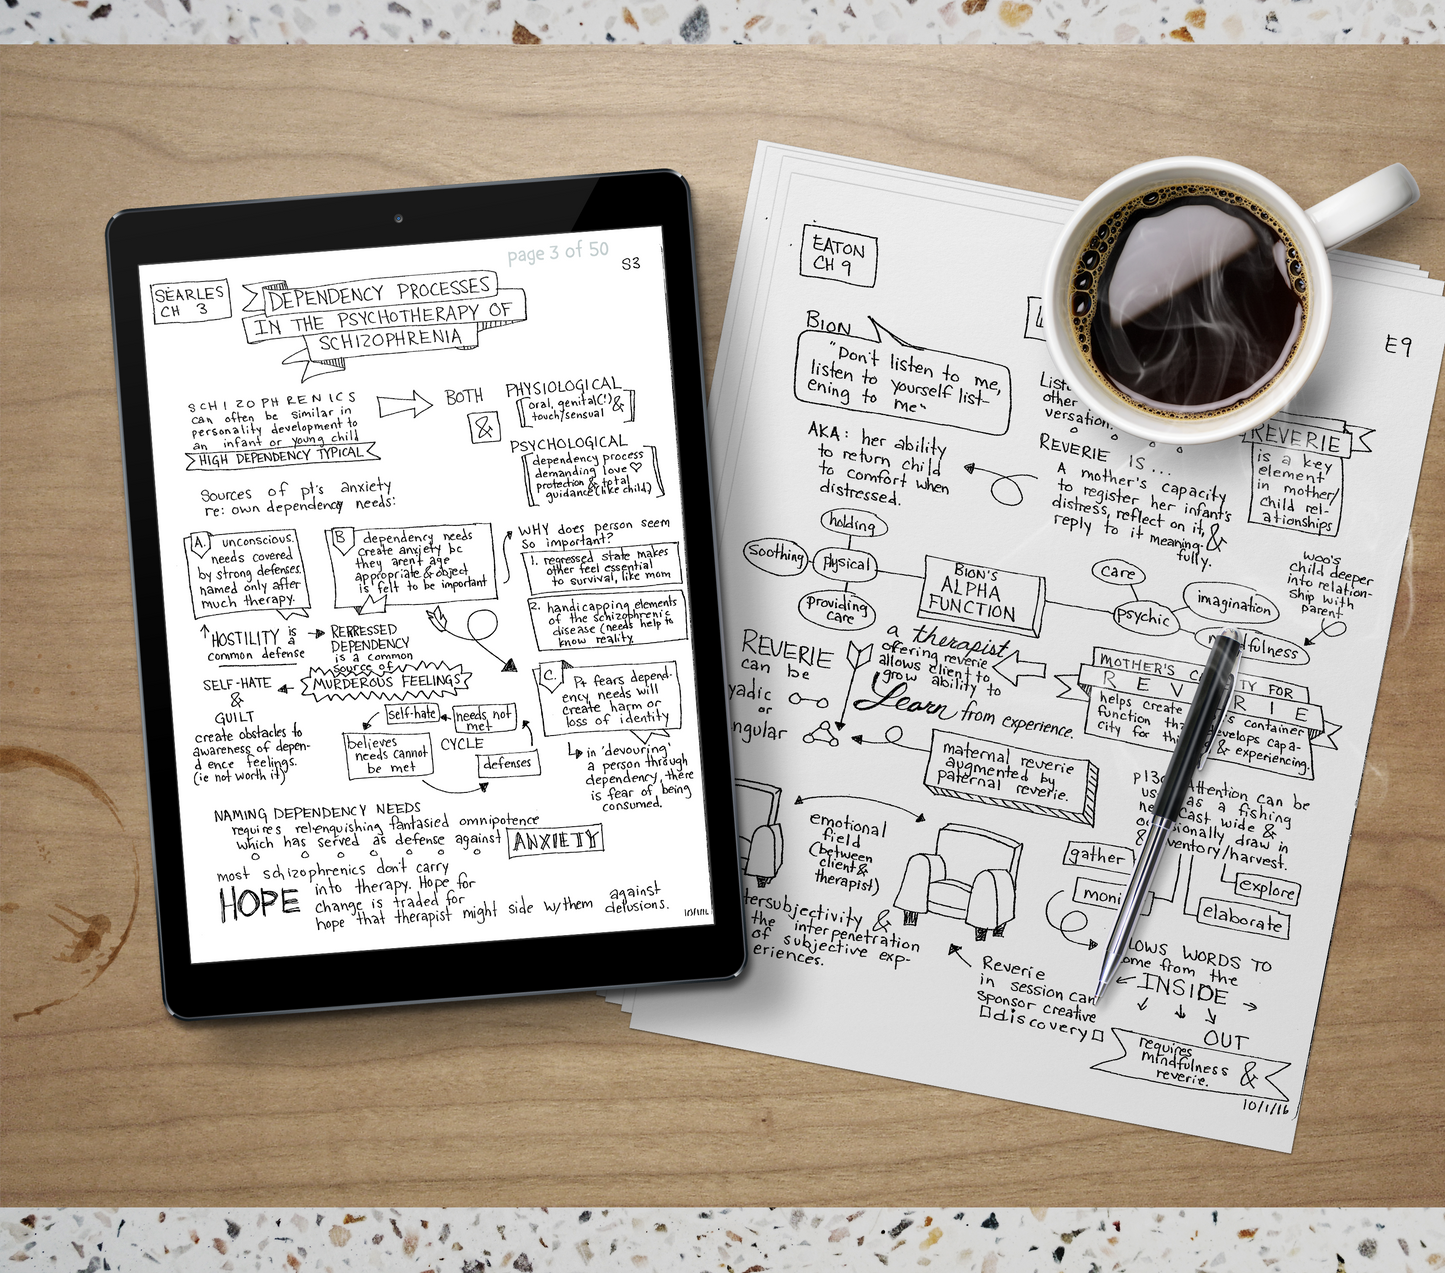 page 3 of 50
S3
SEARLES
CH 3
DEPENDENCY PROCESSES
IN THE PSYCHOTHERAPY OF
SCHIZOPHRENIA
SCHIZOPHRENICS
can often be similar in
personality development to
an infant or young child
HIGH DEPENDENCY TYPICAL
BOTH
&
PHYSIOLOGICAL
oral, genital(!) &
touch/sensual
PSYCHOLOGICAL
dependency process
demanding love ♡
protection & total
guidance (like child)
Sources of pt's anxiety
re: own dependency needs:
A. unconscious.
needs covered
by strong defenses.
named only after
much therapy.
B dependency needs
create anxiety bc
they arent age
appropriate & object
is felt to be important
WHY does person seem
so important?
1. regressed state makes
other feel essential
to survival, like mom
2. handicapping elements
of the schizophrenic
disease (needs help to
know reality.
HOSTILITY is
a
common defense
REPRESSED
DEPENDENCY
is a common
source of
MURDEROUS FEELINGS
SELF-HATE
&
GUILT
create obstacles to
awareness of depen-
dence feelings.
(ie not worth it)
self-hate
needs not
met
believes
needs cannot
be met
CYCLE
defenses
C. Pt fears depend-
ency needs will
create harm or
loss of identity
↳ in 'devouring'
a person through
dependency, there
is fear of being
consumed.
NAMING DEPENDENCY NEEDS
requires relenquishing fantasied omnipotence
which has served as defense against ANXIETY
most schizophrenics don't carry
HOPE into therapy. Hope for
change is traded for
hope that therapist might side w/them against
delusions.
EATON
CH 9
E9
BION
"Don't listen to me,
listen to yourself list-
ening to me"
AKA: her ability
to return child
to comfort when
distressed.
other
versation.
REVERIE IS...
A mother's capacity
to register her infant's
distress, reflect on it, &
reply to it meaning-
fully.
REVERIE
is a key
element
in mother/
child rel-
ationships
woo's
child deeper
into relation-
ship with
parent
holding
Soothing
physical
providing
care
BION'S
ALPHA
FUNCTION
care
psychic
imagination
REVERIE
can be
or
a therapist
offering reverie
allows client to
grow ability to
Learn from experience.
MOTHER'S
FOR
REVERIE
helps create
function
container
& experiencing.
maternal reverie
augmented by
paternal reverie.
emotional
field
(between
client &
therapist)
&
the interpenetration
of subjective exp-
eriences.
Attention can be
as a fishing
Cast wide &
draw in
/harvest.
gather
explore
elaborate
WORDS TO
from the
INSIDE
OUT
Reverie
in session can
sponsor creative
discovery
requires
mindfulness &
reverie.
10/1/16